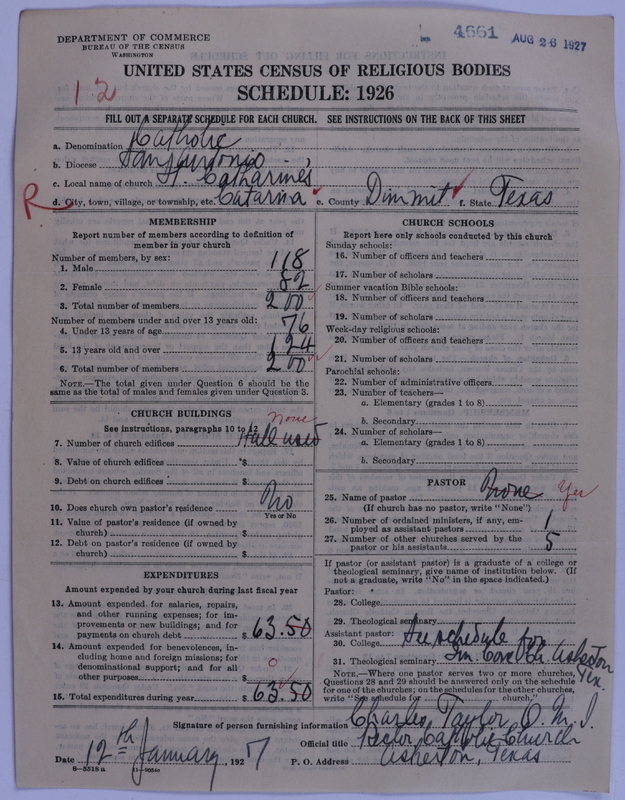 DEPARTMENT OF COMMERCE
BUREAU OF THE CENSUS
WASHINGTON
4661 AUG 26 1927
UNITED STATES CENSUS OF RELIGIOUS BODIES
SCHEDULE: 1926
12
FILL OUT A SEPARATE SCHEDULE FOR EACH CHURCH. SEE INSTRUCTIONS ON THE BACK OF THIS SHEET
a. Denomination Catholic
b. Diocese San Antonio
c. Local name of church St. Catharines
R d. City, town, village, or township, etc. Catarina e. County Dimmit f. State Texas
MEMBERSHIP
Report number of members according to definition of
member in your church
Number of members, by sex:
1. Male 118
2. Female 82
3. Total number of members 200
Number of members under and over 13 years old:
4. Under 13 years of age 76
5. 13 years old and over 124
6. Total number of members 200
NOTE.—The total given under Question 6 should be the
same as the total of males and females given under Question 3.
CHURCH BUILDINGS
See instructions, paragraphs 10 to 12 none
7. Number of church edifices Hall used
8. Value of church edifices $
9. Debt on church edifices $
10. Does church own pastor's residence No
Yes or No
11. Value of pastor's residence (if owned by
church) $
12. Debt on pastor's residence (if owned by
church) $
EXPENDITURES
Amount expended by church during last fiscal year
13. Amount expended for salaries, repairs,
and other running expenses; for im-
provements or new buildings; and for
payments on church debt $ 63.50
14. Amount expended for benevolences, in-
cluding home and foreign missions; for
denominational support; and for all
other purposes $ 0
15. Total expenditures during year $ 63.50
CHURCH SCHOOLS
Report here only schools conducted by this church
Sunday schools:
16. Number of officers and teachers
17. Number of scholars
Summer vacation Bible schools:
18. Number of officers and teachers
19. Number of scholars
Week-day religious schools:
20. Number of officers and teachers
21. Number of scholars
Parochial schools:
22. Number of administrative officers
23. Number of teachers—
a. Elementary (grades 1 to 8)
b. Secondary
24. Number of scholars—
a. Elementary (grades 1 to 8)
b. Secondary
PASTOR
25. Name of pastor None Yes
(If church has no pastor, write "None")
26. Number of ordained ministers, if any, em-
ployed as assistant pastors 1
27. Number of other churches served by the
pastor or his assistants 5
If pastor (or assistant pastor) is a graduate of a college or
theological seminary, give name of institution below. (If
not a graduate, write "No" in the space indicated.)
Pastor:
28. College
29. Theological seminary
Assistant pastor:
30. College See schedule for
31. Theological seminary Asherton
Tex.
NOTE.—Where one pastor serves two or more churches,
Questions 28 and 29 should be answered only on the schedule
for one of the churches; on the schedules for the other churches,
write "See schedule for church."
Signature of person furnishing information Charles Taylor O.M.I.
Official title Rector Catholic Church
Date 12th January, 1927 P. O. Address Asherton, Texas
8—5318 a